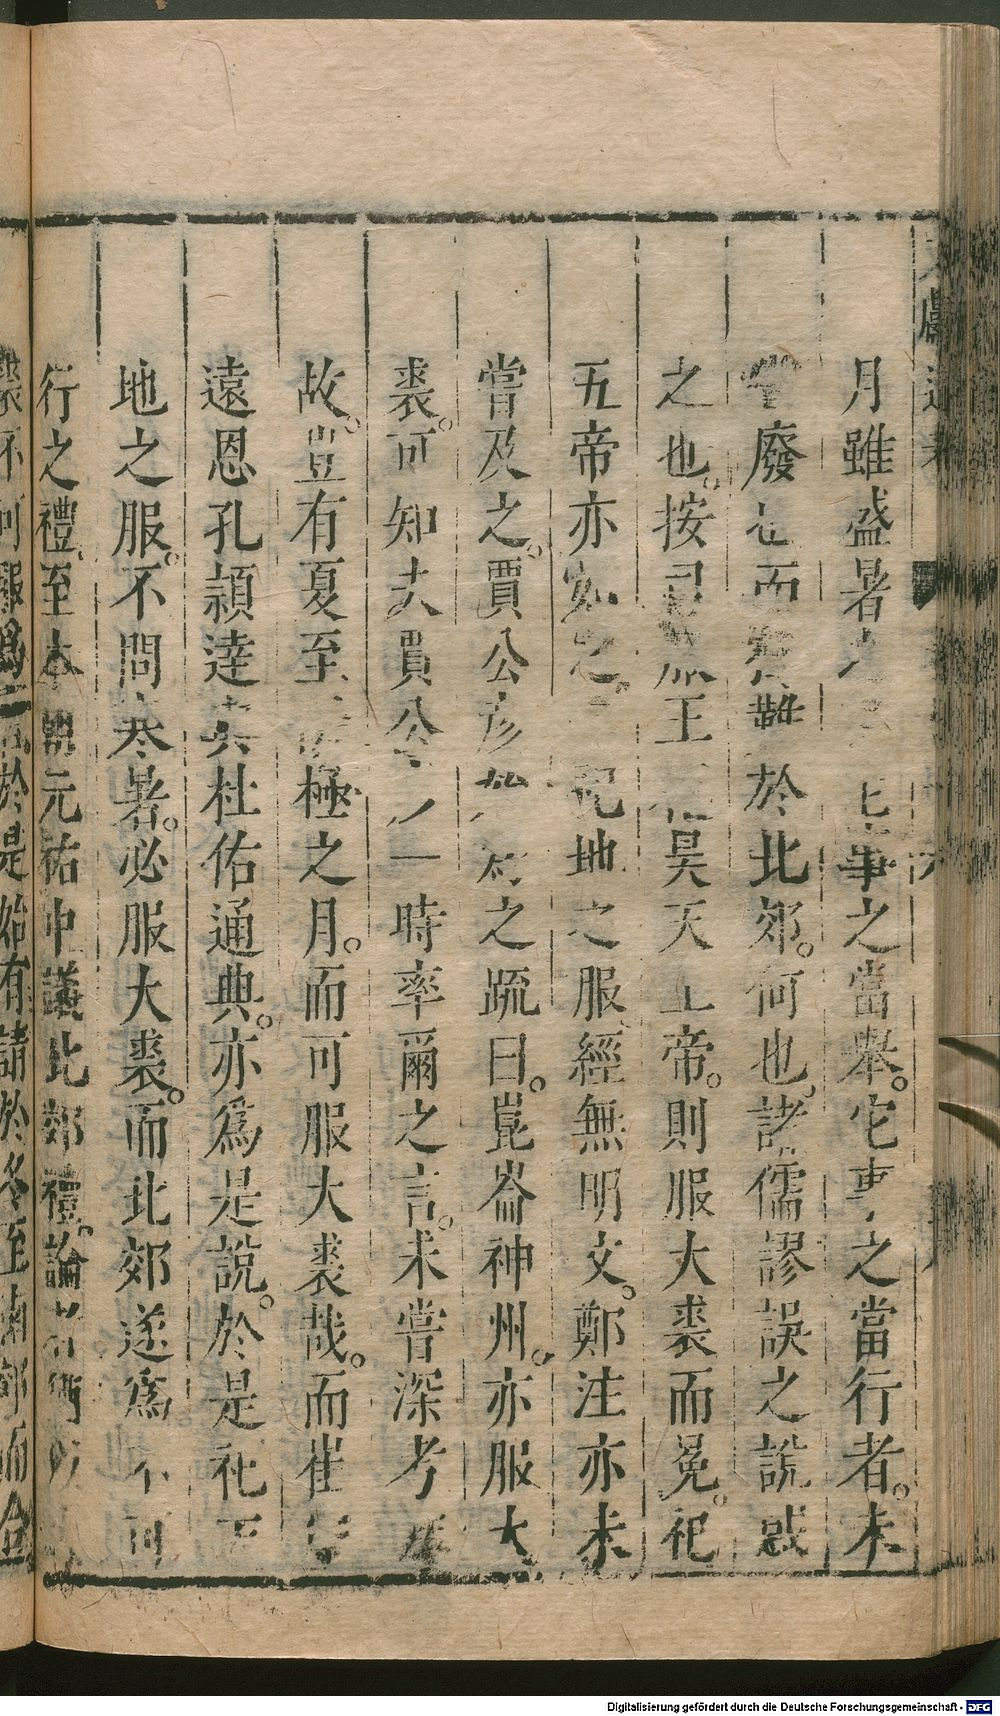 月雖盛暑 事之當舉。它事之當行者。未
嘗廢也而 難於北郊。何也。諸儒謬誤之說惑
之也。按司服王 昊天上帝。則服大裘而冕。祀
五帝亦如之。 祀地之服。經無明文。鄭注亦未
嘗及之。賈公彥 之疏曰。崑崙神州。亦服大
裘。可知夫賈公 一時率爾之言。未嘗深考
故。豈有夏至 極之月。而可服大裘哉。而崔
遠恩孔頴達 杜佑通典。亦爲是說。於是祀
地之服。不問寒暑。必服大裘。而北郊遂爲不可
行之禮。至本朝元祐中議北郊禮。論者
裘不可 於是始有請於冬至南郊而合
Digitalisierung gefördert durch die Deutsche Forschungsgemeinschaft - DFG